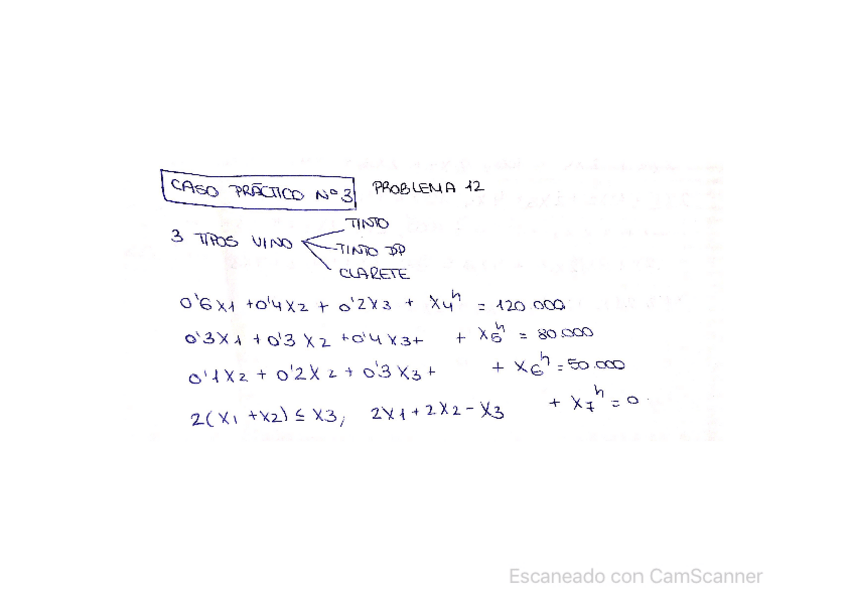 CASO PRÁCTICO Nº3 PROBLEMA 12
TINTO
3 TIPOS VINO
TINTO DP
CLARETE
0'6X1 + 0'4X2 + 0'2X3 + X4ʰ = 120.000
0'3X1 + 0'3X2 + 0'4X3 + + X5ʰ = 80.000
0'1X2 + 0'2X2 + 0'3X3 + + X6ʰ = 50.000
2(X1 + X2) ≤ X3, 2X1 + 2X2 - X3 + X7ʰ = 0
Escaneado con CamScanner